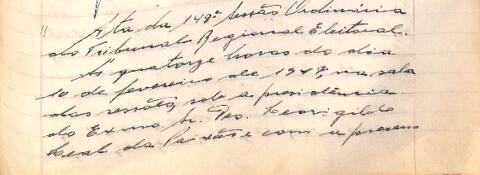 Ata da 149ª Sessão Ordinária
do Tribunal Regional Eleitoral.
Às quatorze horas do dia
10 de fevereiro de 1947, na sala
das sessões, sob a presidência
do Exmo. Sr. Des. Leovigildo
Leal da Paixão e com a presen